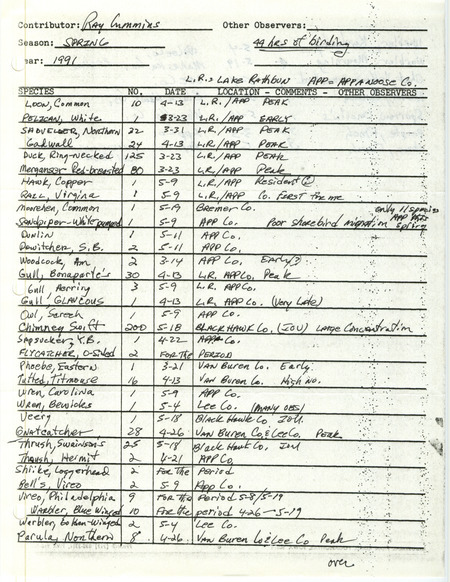 Contributor: Ray Cummins Other Observers:
Season: SPRING 44 hrs of birding
ear: 1991
L.R. = LAKE Rathbun APP = APPANOOSE Co.
SPECIES NO. DATE LOCATION - COMMENTS - OTHER OBSERVERS
LOON, Common 10 4-13 L.R./APP PEAK
PELICAN, White 1 3-23 L.R./APP EARLY
SHOVELER, Northern 22 3-31 L.R./APP PEAK
Gadwall 24 4-13 L.R./APP PEAK
Duck, Ring-necked 125 3-23 L.R./APP PEAK
Merganser Red-breasted 80 3-23 L.R./APP Peak
HAWK, Cooper 1 5-9 L.R./APP Resident
RAIL, Virginia 1 5-9 L.R./APP Co. FIRST for me
Moorehen, Common 1 5-19 Bremer Co.
only 11 species
Sandpiper-White rumped 1 5-9 APP Co. Poor shorebird migration APP Spring
Dunlin 1 5-11 APP Co.
Dowitcher, S.B. 2 5-11 APP Co.
Woodcock, Am 2 3-14 APP Co, Early?
Gull, Bonaparte's 30 4-13 L.R. APP Co, Peak
Gull, Herring 3 5-9 L.R. APP Co.
Gull, GLAUCOUS 1 4-13 L.R. APP Co. (Very Late)
Owl, Screech 1 5-9 APP Co.
Chimney Swift 200 5-18 BLACK HAWK Co. (IOU) Large Concentration
Sapsucker, Y.B. 1 4-22 APP Co.
FLYCATCHER, O-sided 2 FOR THE PERIOD
Phoebe, Eastern 1 3-21 VAN Buren Co. Early
Tufted, Titmouse 16 4-13 Van Buren Co. High No.
Wren, Carolina 1 5-9 APP Co.
Wren, Bewicks 1 5-4 Lee Co. (MANY OBS)
Veery 1 5-18 Black Hawk Co IOU.
Gnatcatcher 28 4-26 VAN Buren Co & Lee Co. Peak
Thrush, Swainson's 25 5-18 Black Hawk Co. IOU
Thrush, Hermit 2 4-21 APP Co.
Shrike, Loggerhead 2 For the Period
Bell's, Vireo 2 5-9 App Co.
Vireo, Philadelphia 9 FOR the Period 5-8/5-19
Warbler, Blue Winged 10 For the period 4-26 - 5-19
Warbler, Golden-Winged 2 5-4 Lee Co.
Parula, Northern 8 4-26 Van Buren Co & Lee Co Peak
over